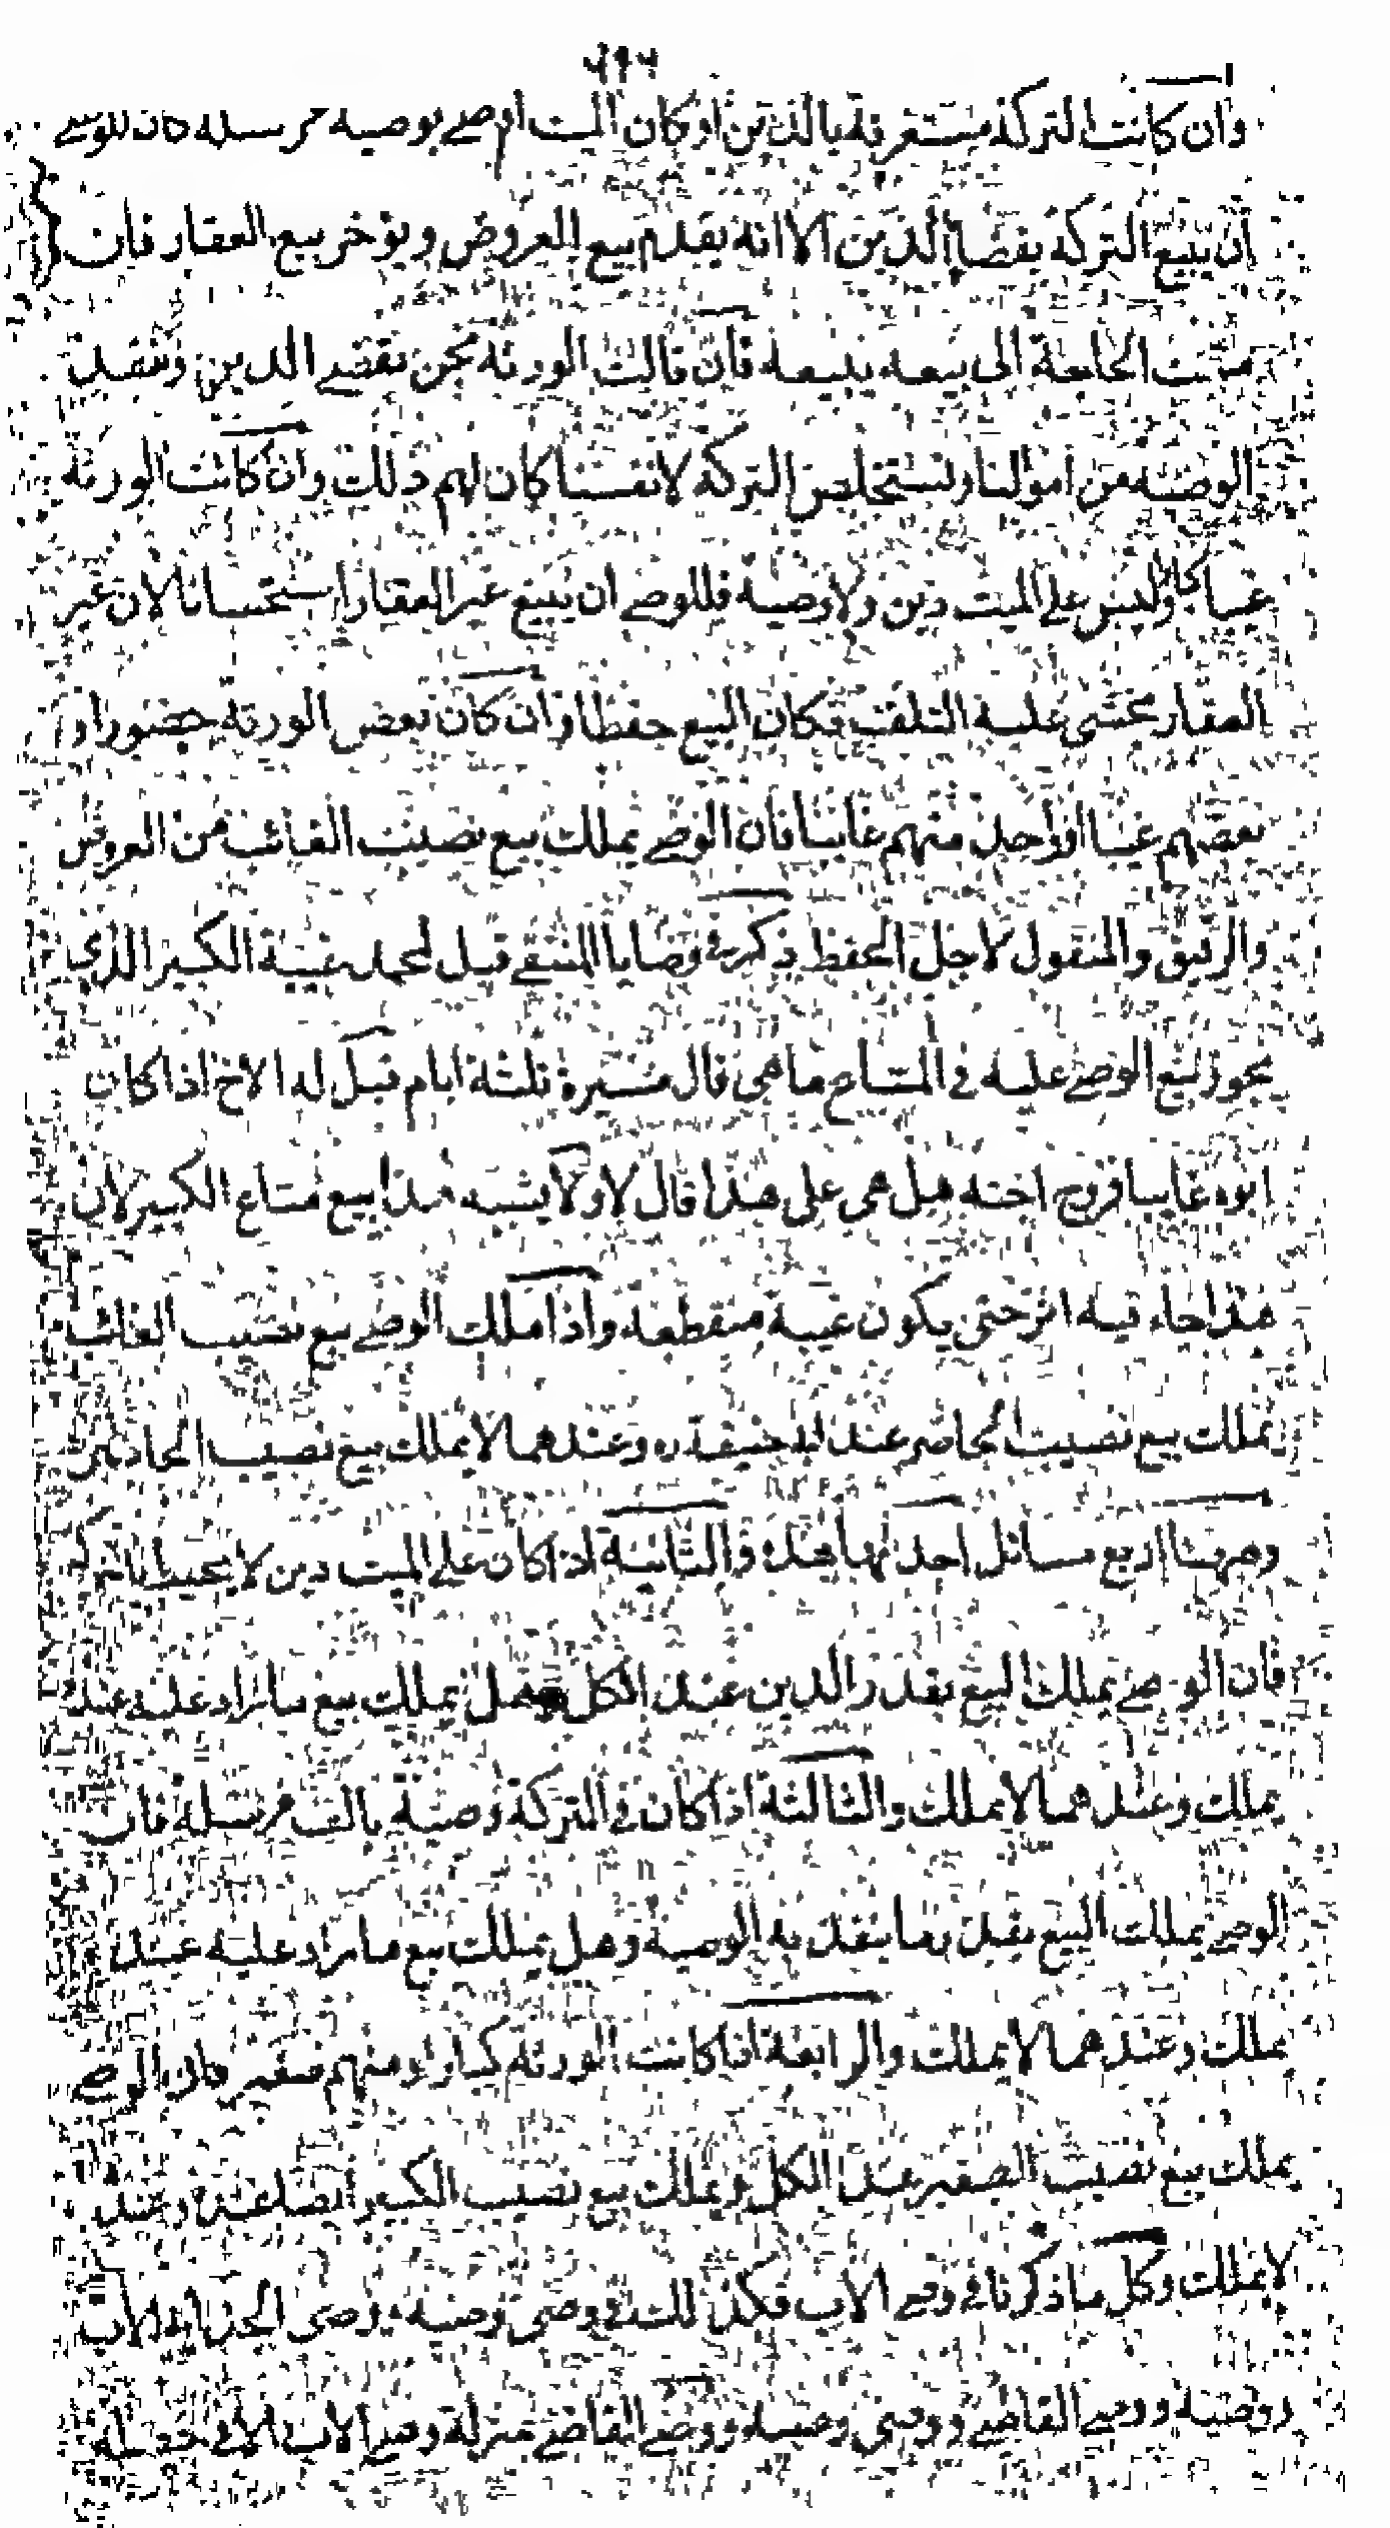 وان كانت التركة مستغرقة بالدين او كان الميت اوصى بوصية مرسلة كان للوصى
ان يبيع التركة بقضاء الدين الا انه يقدم بيع العروض ويؤخر بيع العقار فان
مست الحاجة الى بيعه يبيعه فان قالت الورثة نحن نقضى الدين وننفذ
الوصية من اموالنا ونستخلص التركة لانفسنا كان لهم ذلك وان كانت الورثة
غيبا وليس على الميت دين ولا وصية فللوصى ان يبيع غير العقار استحسانا لان غير
العقار يخشى عليه التلف فكان البيع حفظا وان كان بعض الورثة حضورا و
بعضهم غيبا او واحد منهم غائبا فان الوصى يملك بيع نصيب الغائب من العروض
والرقيق والمنقول لاجل الحفظ ذكره فى وصايا المنتقى قيل لمحمد غيبة الكبير الذي
يجوز بيع الوصى عليه فى المتاع ما هى قال مسيرة ثلثة ايام قيل له الاخ اذا كان
ابوه غائبا فزوج اخته هل هى على هذا قال لا ولا يشبه هذا بيع متاع الكبير لان
هذا جاء فيه اثر حتى يكون غيبة منقطعة واذا ملك الوصى بيع نصيب الغائب
يملك بيع نصيب الحاضر عند ابى حنيفة ره وعندهما لا يملك بيع نصيب الحاضر
وههنا اربع مسائل احدها هذه والثانية اذا كان على الميت دين لا يحيط بالتركة
فان الوصى يملك البيع بقدر الدين عند الكل وهل يملك بيع ما زاد عليه عنده
يملك وعندهما لا يملك والثالثة اذا كان فى التركة وصية بالف مرسلة فان
الوصى يملك البيع بقدر ما ينفذ به الوصية وهل يملك بيع ما زاد عليه عنده
يملك وعندهما لا يملك والرابعة اذا كانت الورثة كبارا ومنهم صغير فان الوصى
يملك بيع نصيب الصغير عند الكل ويملك بيع نصيب الكبير ايضا عنده وعندهما
لا يملك وكل ما ذكرنا فى وصى الاب فكذلك فى وصى وصيه ووصى الجد اب الاب
ووصيه ووصى القاضى ووصى وصيه ووصى القاضى بمنزلة وصى الاب الا فى خصلة